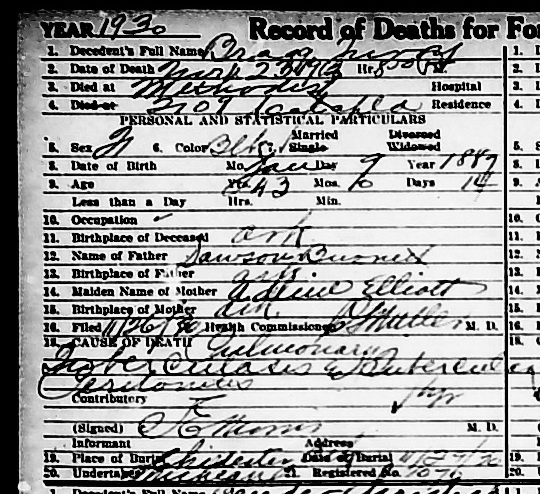 YEAR 1930 Record of Deaths for Fo
1. Decedent's Full Name
2. Date of Death 23 1930 Hr. 8:50 P M.
3. Died at Methodist Hospital
4. Died at 2109 Residence
PERSONAL AND STATISTICAL PARTICULARS
5. Sex 6. Color Blk 7. Married Single Divorced Widowed
8. Date of Birth Mo. Jan Day 9 Year 1887
9. Age Yrs. 43 Mos. 10 Days 14
Less than a Day Hrs. Min.
10. Occupation
11. Birthplace of Deceased ark
12. Name of Father Dawson
13. Birthplace of Father ark
14. Maiden Name of Mother Adline Elliott
15. Birthplace of Mother ark
16. Filed 11/26/30 Health Commissioner M. D.
18. CAUSE OF DEATH Pulmonary
Tuberculosis & Tubercular
Peritonitis
Contributory
(Signed) M. D.
Informant Address
19. Place of Burial Chidester Date of Burial 11/27/30
20. Undertaker 21. Registered No.
1. Decedent's Full Name